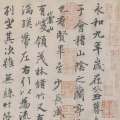 永和九年歲在癸丑
于會稽山陰之蘭亭
也羣賢畢至少長
有崇山峻領茂林脩竹
湍暎帶左右引以為流
列坐其次雖無絲竹